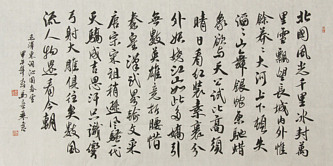 北國風光千里冰封萬
里雪飄望長城內外惟
餘莽莽大河上下頓失
滔滔山舞銀蛇原馳蠟
象欲與天公試比高須
晴日看紅裝素裹分
外妖嬈江山如此多嬌引
無數英雄競折腰惜
秦皇漢武略輸文采
唐宗宋祖稍遜風騷一代
天驕成吉思汗只識彎
弓射大雕俱往矣數風
流人物還看今朝
毛澤東詞沁園春雪
甲午